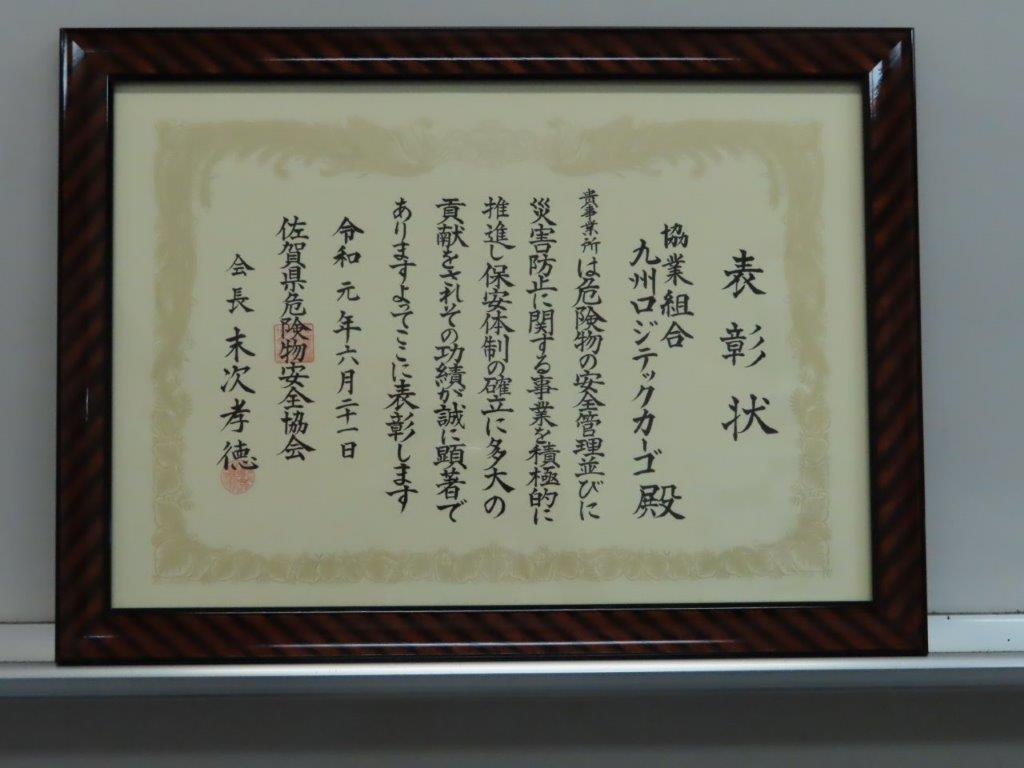 表彰状
協業組合
九州ロジテックカーゴ 殿
貴事業所は危険物の安全管理並びに
災害防止に関する事業を積極的に
推進し保安体制の確立に多大の
貢献をされその功績が誠に顕著で
ありますよってここに表彰します
令和元年六月二十一日
佐賀県危険物安全協会
会長 末次孝徳